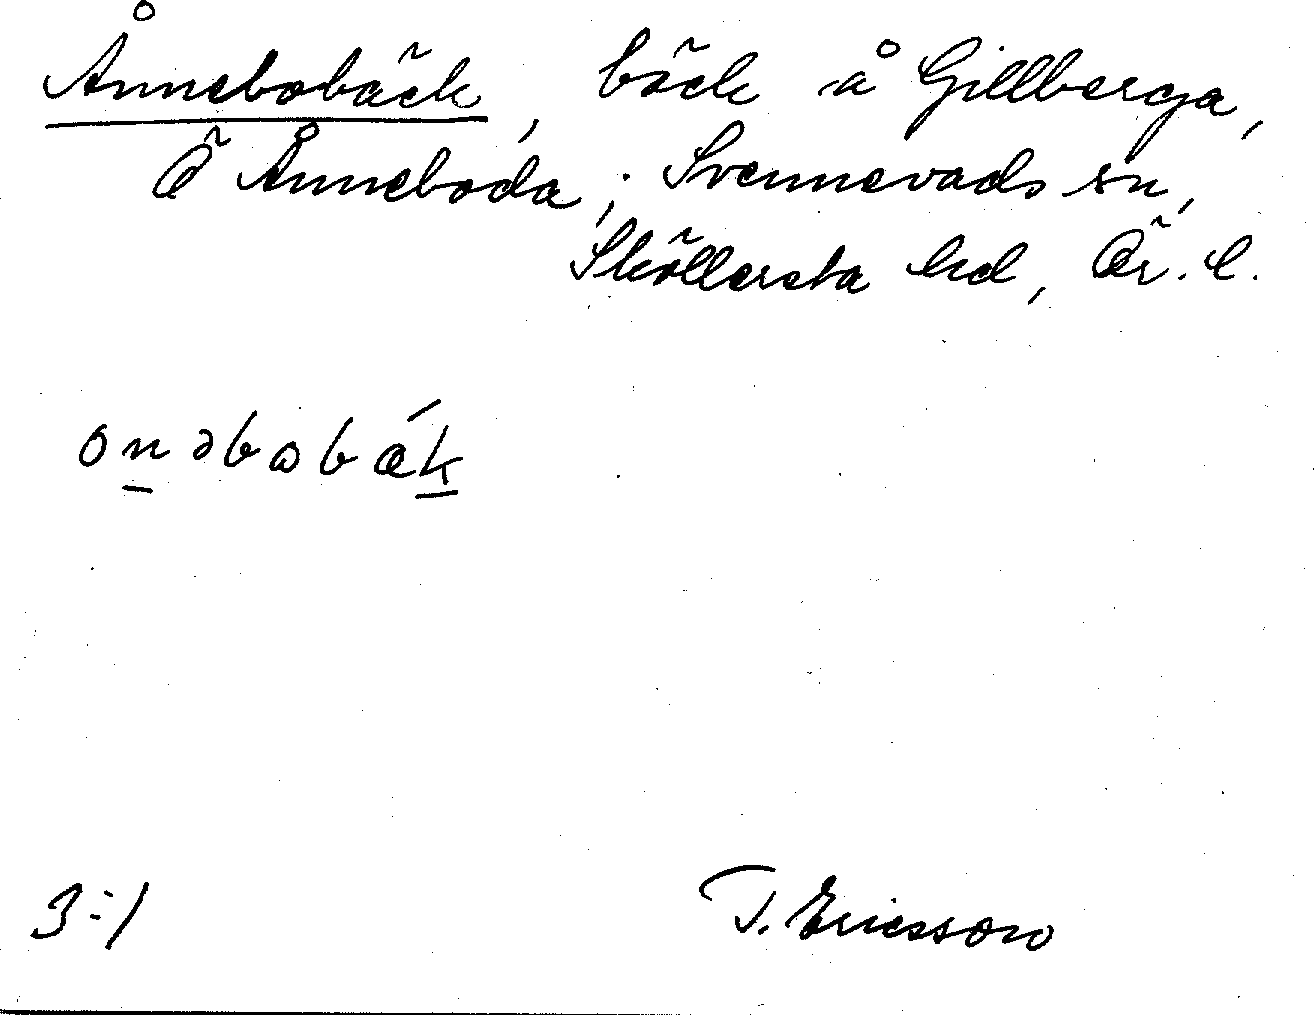 Ånnebobäck, bäck å Gillberga,
Ö Ånneboda, Svennevads sn,
Sköllersta hd, Ör. l.
onəbobäḱ
3:1
T. Ericsson